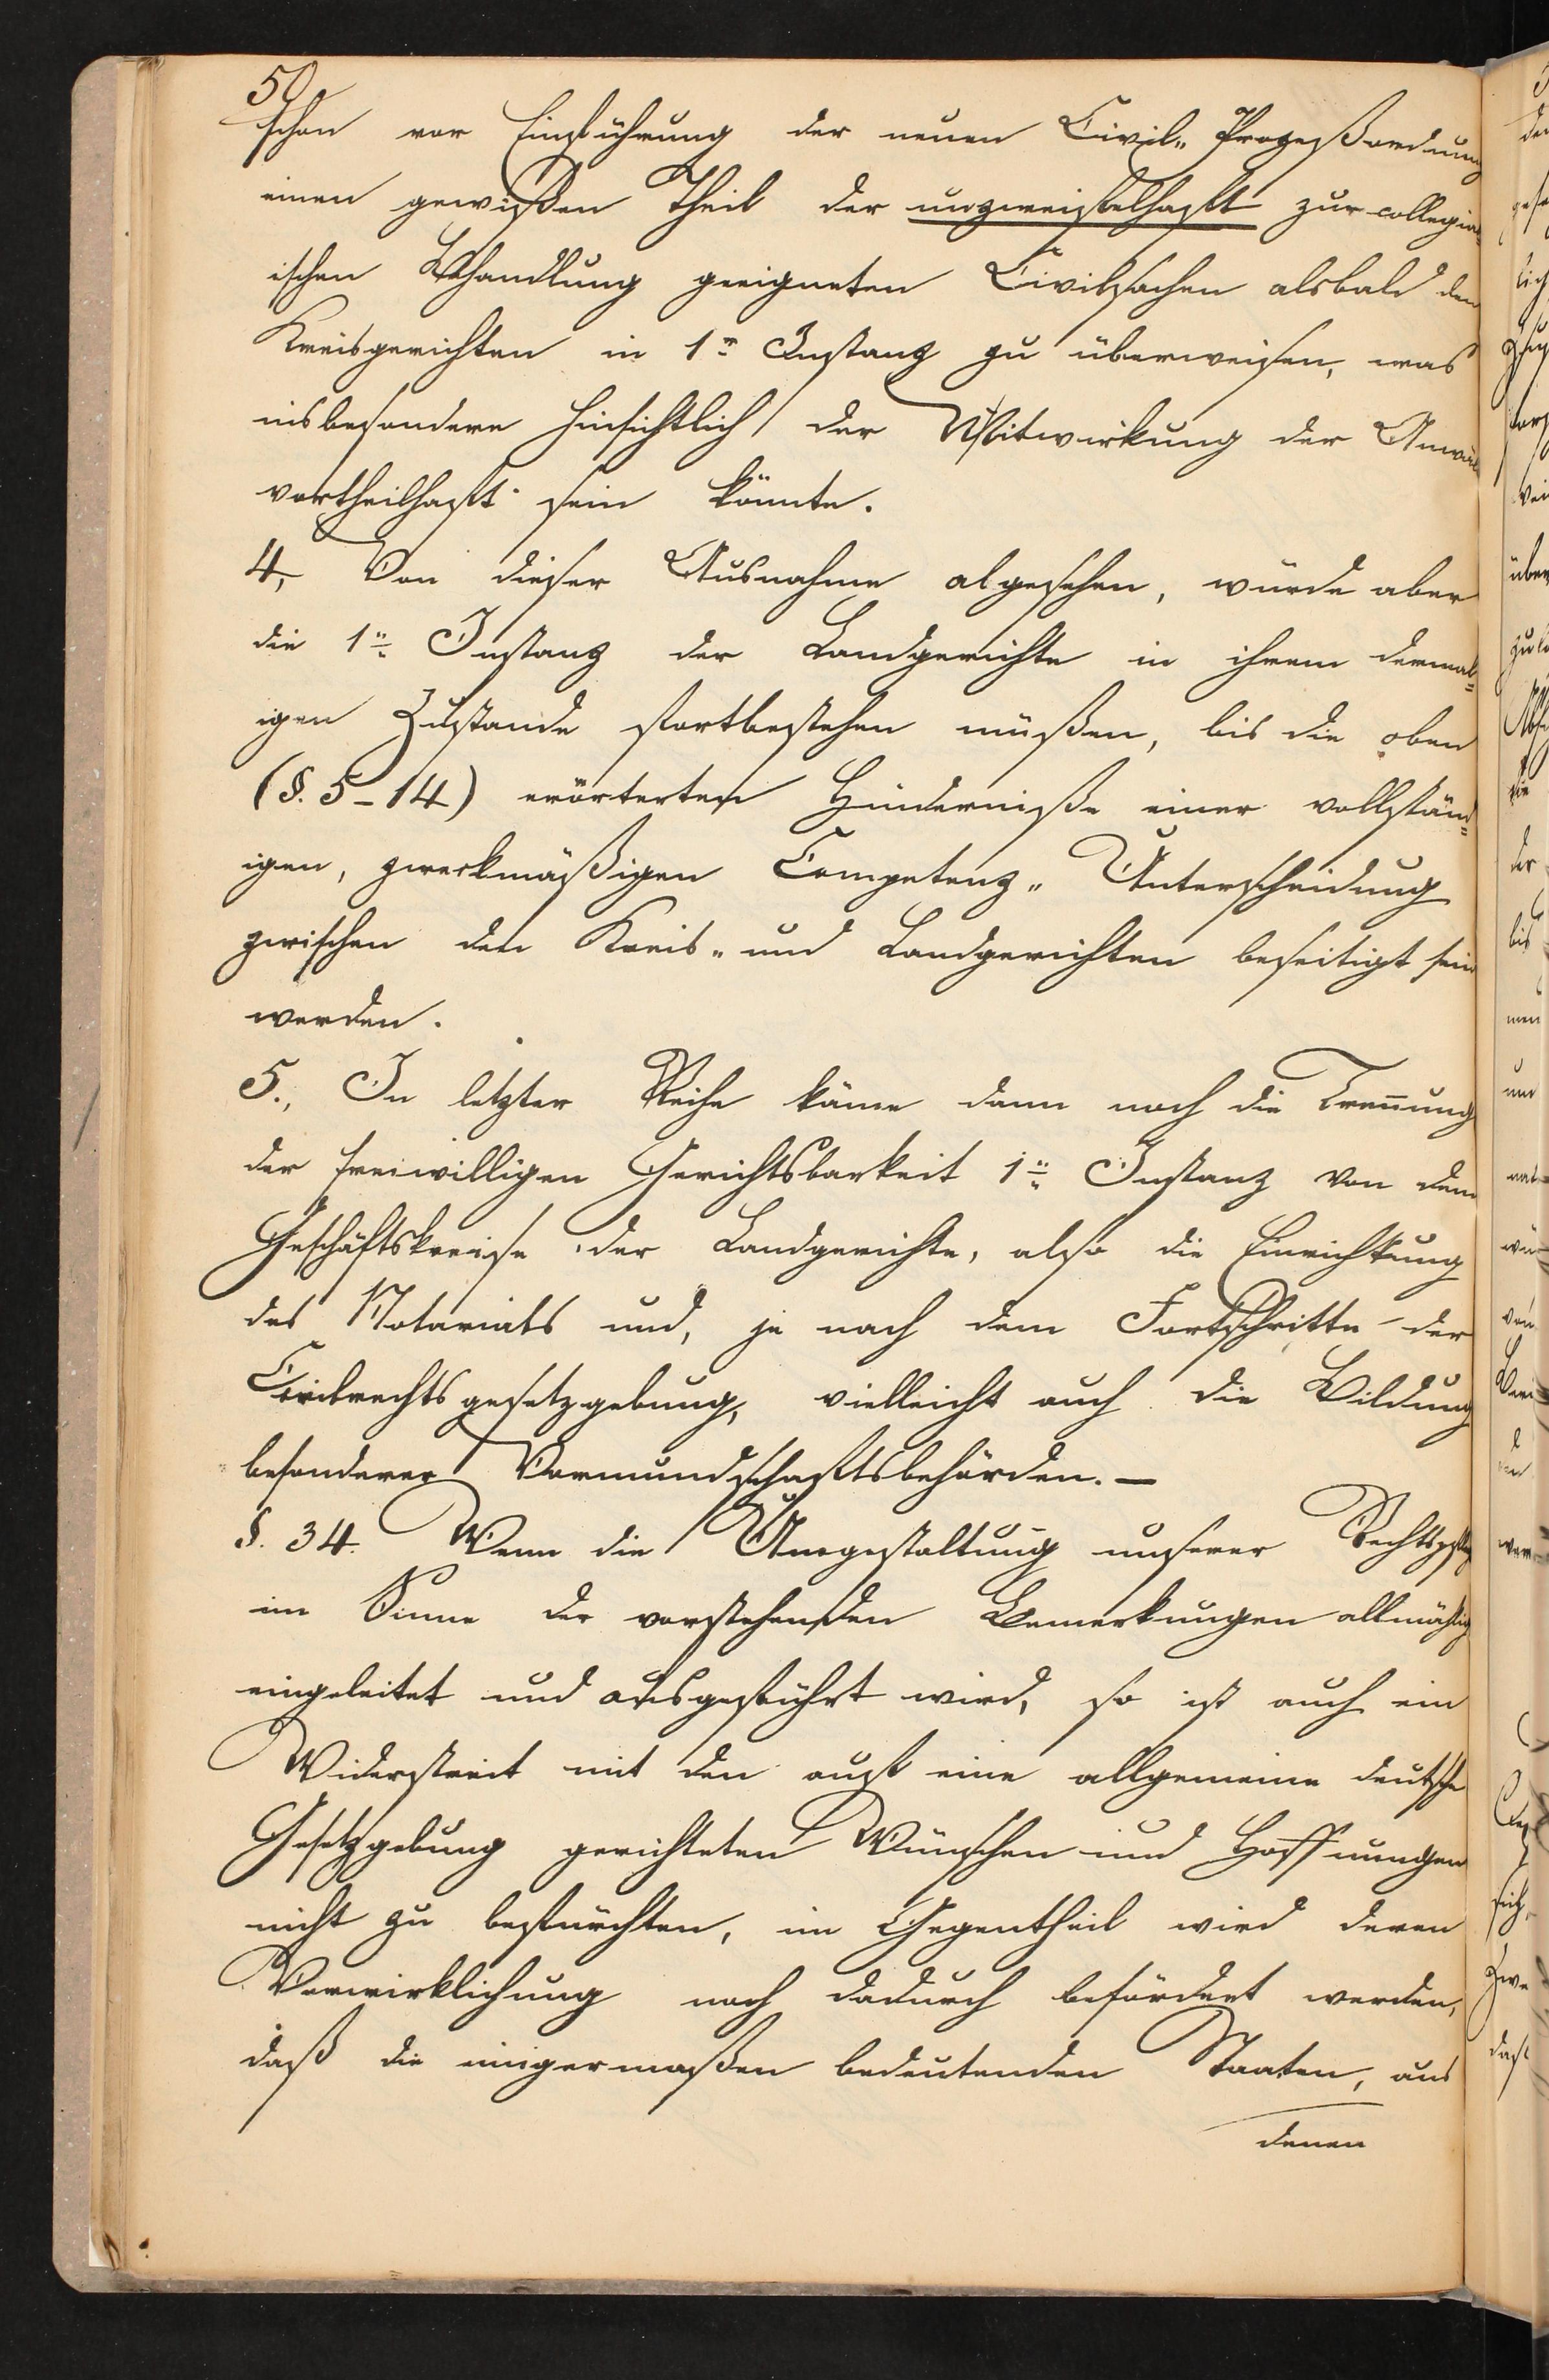 50
schon vor Einführung der neuen Civil„ Prozeßordnung
einen gewißen Theil der unzweifelhaft zur collegial=
ischen Behandlung geeigneten Civilsachen alsbald den
Kreisgerichten in 1r Instanz zu überweisen, was
insbesondere hinsichtlich der Mitwirkung der Anwäl
vortheilhaft sein könnte.
4., Von dieser Ausnahme abgesehen, würde aber
die 1te Instanz der Landgerichte in ihrem dermal=
igen Zustande fortbestehen müßen, bis die oben
(§. 5-14) erörterten Hinderniße einer vollständ=
igen, zweckmäßigen Competenz„ Unterscheidung
zwischen den Kreis„ und Landgerichten beseitigt sein
werden.
5., In letzter Reihe käme dann noch die Trennung
der freiwilligen Gerichtsbarkeit 1te Instanz von dem
Geschäftskreise der Landgerichte, also die Einrichtung
des Notariats und, je nach dem Fortschritte der
Civilrechtsgesetzgebung, vielleicht auch die Bildung
besonderer Vormundschaftsbehörden. —
§. 34. Wenn die Umgestaltung unserer Rechtspflege
im Sinne der vorstehenden Bemerkungen allmählig
eingeleitet und ausgeführt wird, so ist auch ein
Widerstreit mit den auf eine allgemeine deutsche
Gesetzgebung gerichteten Wünschen und Hoffnungen
nicht zu befürchten, im Gegentheil wird deren
Verwirklichung noch dadurch befördert werden,
daß die einigermaßen bedeutenden Staaten, aus
denen